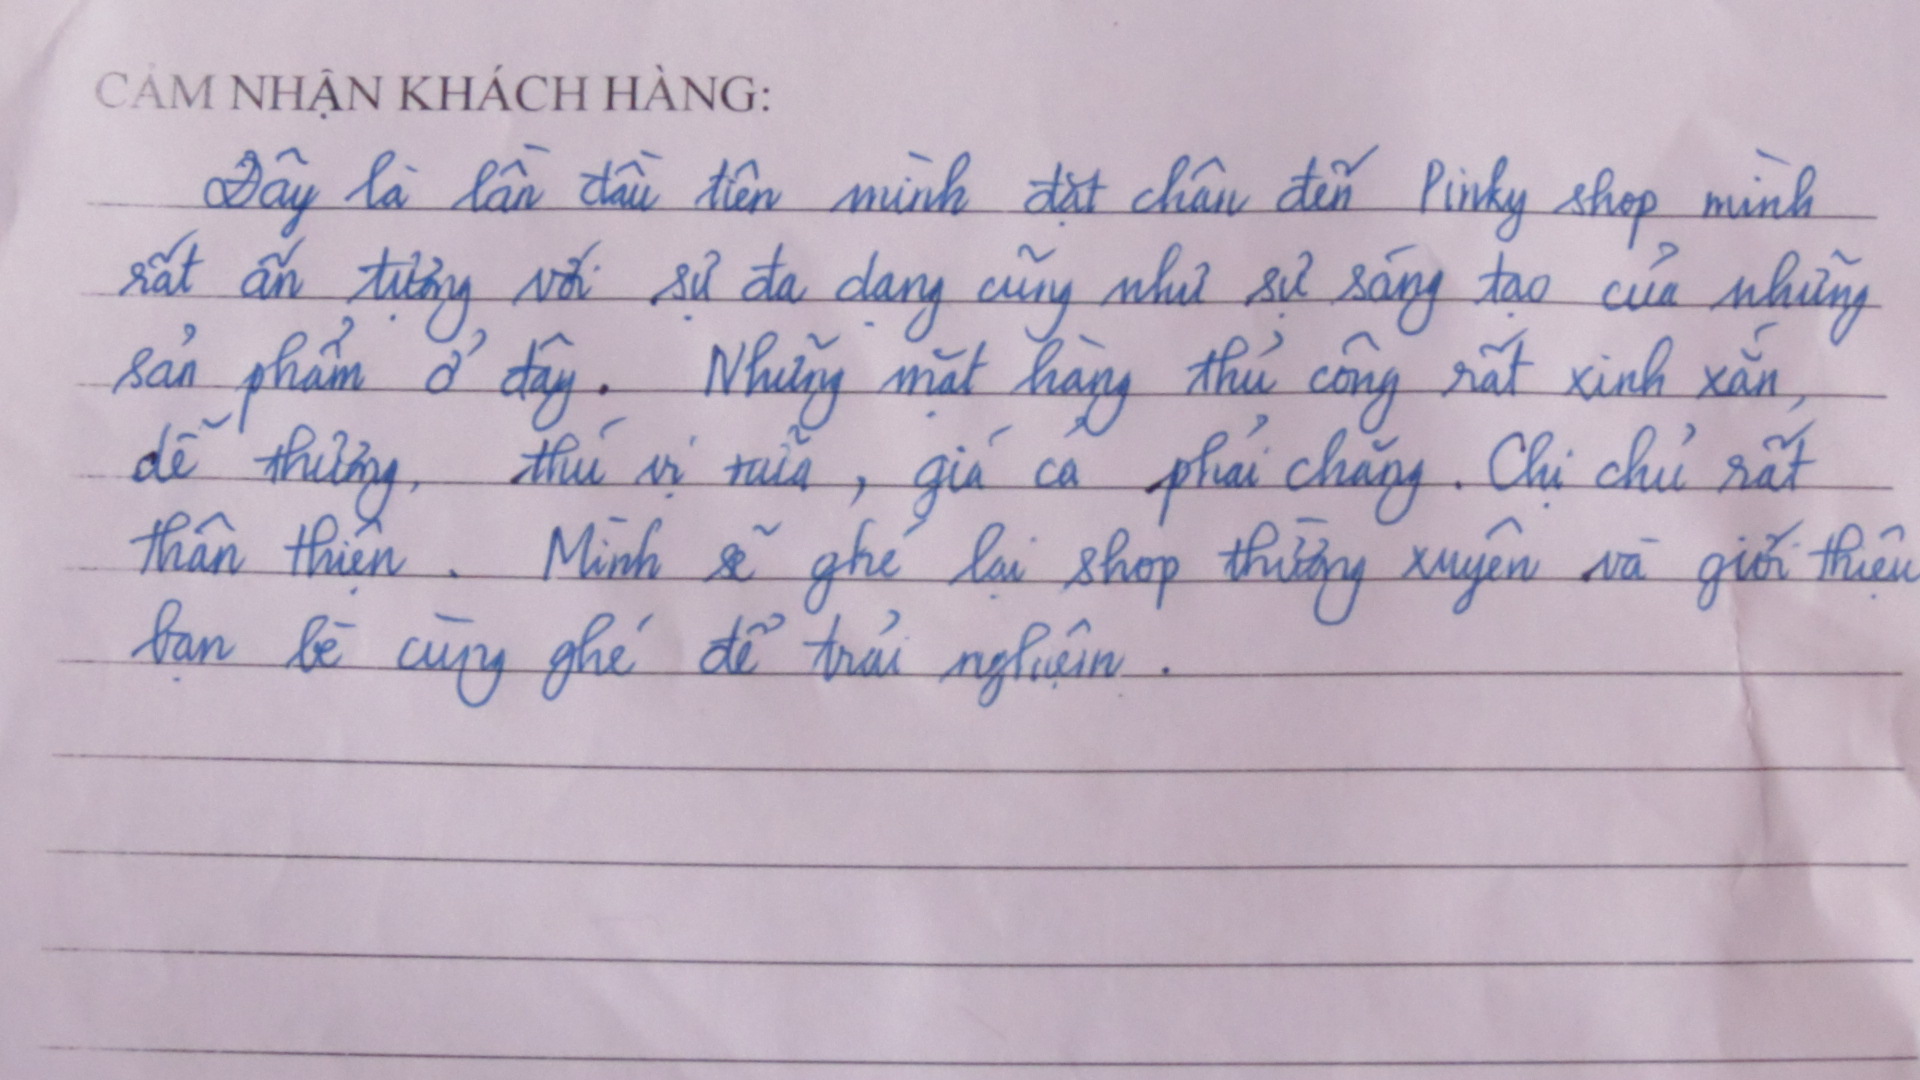 CẢM NHẬN KHÁCH HÀNG:
Đây là lần đầu tiên mình đặt chân đến Pinky shop mình
rất ấn tượng với sự đa dạng cũng như sự sáng tạo của những
sản phẩm ở đây. Những mặt hàng thủ công rất xinh xắn,
dễ thương, thú vị nữa, giá cả phải chăng. Chị chủ rất
thân thiện. Mình sẽ ghé lại shop thường xuyên và giới thiệu
bạn bè cùng ghé để trải nghiệm.